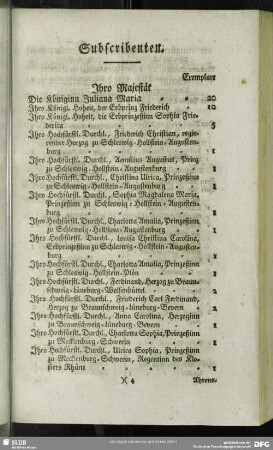 Subscribenten.
Exemplare
Ihro Majestät
Die Königinn Juliana Maria 20
Ihro Königl. Hoheit, der Erbprinz Friederich 10
Ihro Königl. Hoheit, die Erbprinzeßinn Sophia Frie-
derica 5
Ihro Hochfürstl. Durchl., Friederich Christian, regie-
render Herzog zu Schleswig-Hollstein-Augusten-
burg 1
Ihro Hochfürstl. Durchl., Aemilius Augustus, Prinz
zu Schleswig-Hollstein-Augustenburg 1
Ihro Hochfürstl. Durchl., Christina Ulrica, Prinzeßinn
zu Schleswig-Hollstein-Augustenburg 1
Ihro Hochfürstl. Durchl., Sophia Magdalena Maria,
Prinzeßinn zu Schleswig-Hollstein-Augusten-
burg 1
Ihro Hochfürstl. Durchl., Charlotta Amalia, Prinzeßinn
zu Schleswig-Hollstein-Augustenburg 1
Ihro Hochfürstl. Durchl., Louisa Christina Carolina,
Erbprinzeßinn zu Schleswig-Hollstein-Augusten-
burg 1
Ihro Hochfürstl. Durchl., Charlotta Amalia, Prinzeßinn
zu Schleswig-Hollstein-Plön 1
Ihro Hochfürstl. Durchl., Ferdinand, Herzog zu Braun-
schweig-Lüneburg-Wolfenbüttel 2
Ihro Hochfürstl. Durchl., Friederich Carl Ferdinand,
Herzog zu Braunschweig-Lüneburg-Bevern 1
Ihro Hochfürstl. Durchl., Anna Carolina, Herzoginn
zu Braunschweig-Lüneburg-Bevern 1
Ihro Hochfürstl. Durchl., Charlotta Sophia, Prinzeßinn
zu Mecklenburg-Schwerin 1
Ihro Hochfürstl. Durchl., Ulrica Sophia, Prinzeßinn
zu Mecklenburg-Schwerin, Regentinn des Klo-
sters Rhüne 1
)( 4 Ahrens-
SLUB
DFG